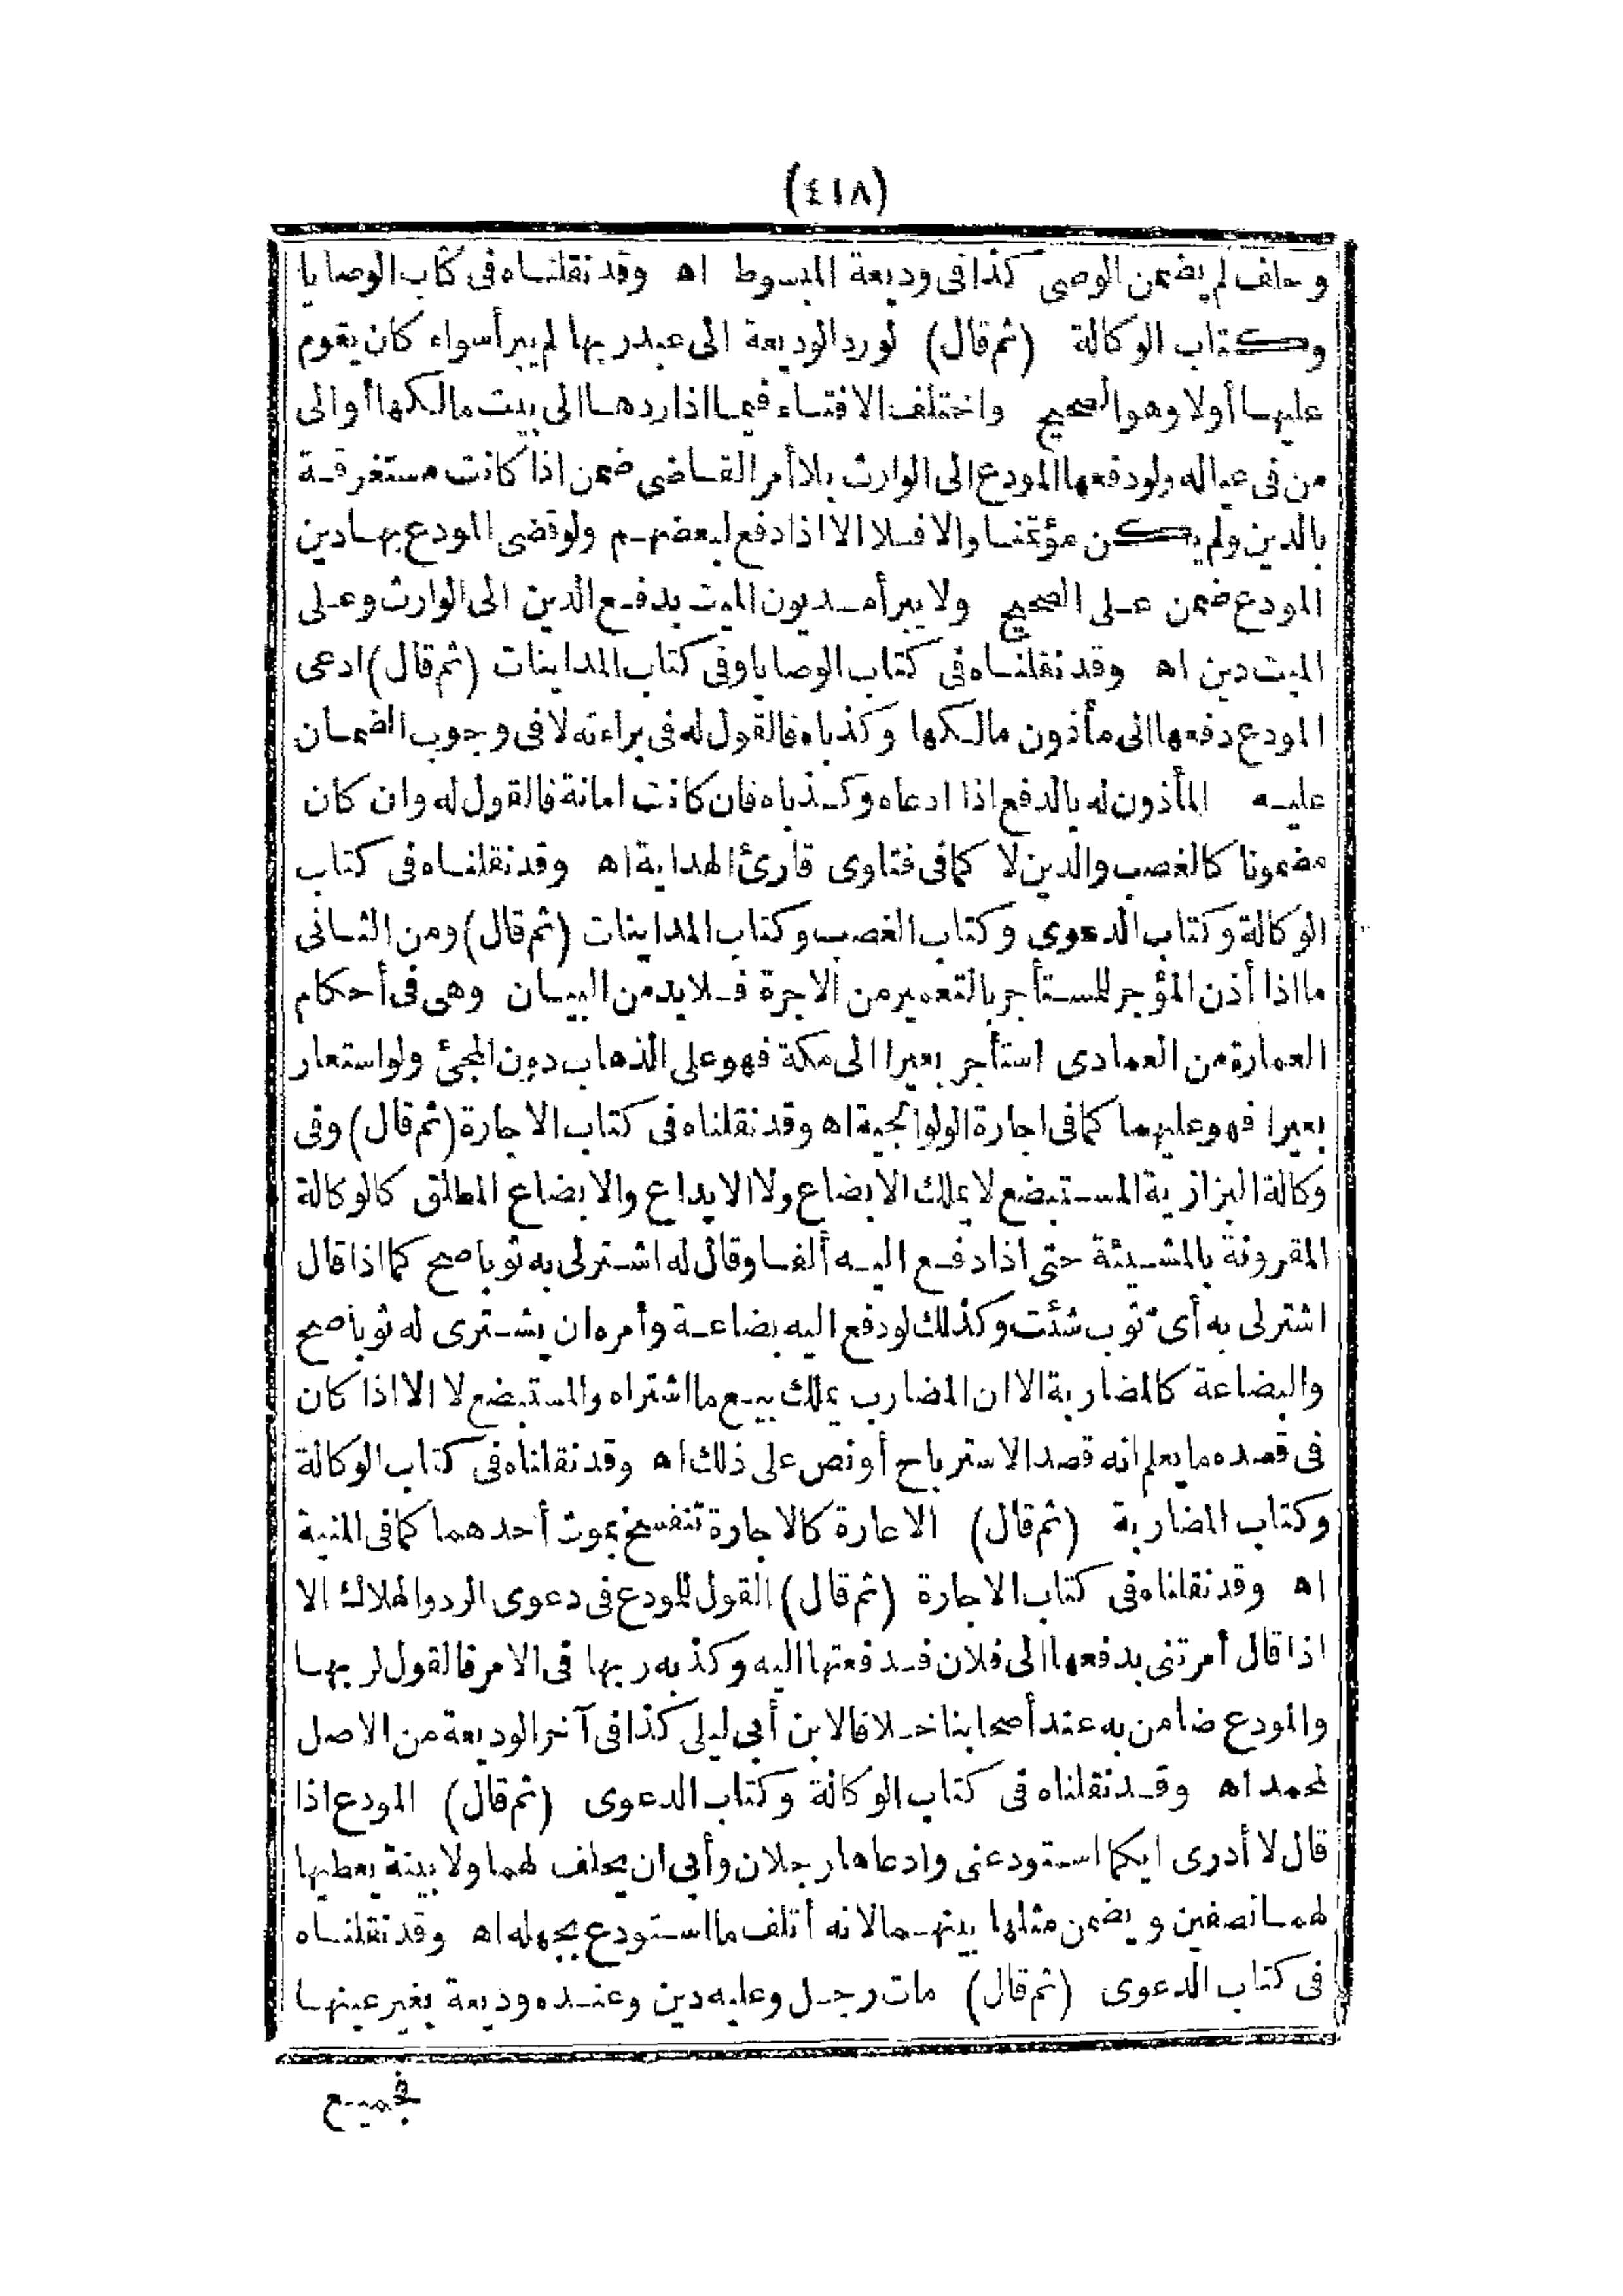 (٤١٨)
وحلف لم يضمن الوصى كذا فى وديعة المبسوط اه وقد نقلناه فى كتاب الوصايا
وكتاب الوكالة (ثم قال) لو رد الوديعة الى عبد ربها لم يبرأ سواء كان يقوم
عليها أولا وهو الصحيح واختلف الافتاء فيما اذا ردها الى بيت مالكها أو الى
من فى عياله ولو دفعها المودع الى الوارث بلا أمر القاضى ضمن اذا كانت مستغرقة
بالدين ولم يكن مؤتمنا والا فلا الا اذا دفع لبعضهم ولو قضى المودع بها دين
المودع ضمن على الصحيح ولا يبرأ مديون الميت بدفع الدين الى الوارث وعلى
الميت دين اه وقد نقلناه فى كتاب الوصايا وفى كتاب المداينات (ثم قال) ادعى
المودع دفعها الى مأذون مالكها وكذباه فالقول له فى براءته لا فى وجوب الضمان
عليه المأذون له بالدفع اذا ادعاه وكذباه فان كانت امانة فالقول له وان كان
مضمونا كالغصب والدين لا كما فى فتاوى قارئ الهداية اه وقد نقلناه فى كتاب
الوكالة وكتاب الدعوى وكتاب الغصب وكتاب المداينات (ثم قال) ومن الثانى
ما اذا أذن المؤجر للمستأجر بالتعمير من الاجرة فلا بد من البيان وهى فى أحكام
العمارة من العمادى استأجر بعيرا الى مكة فهو على الذهاب دون المجئ ولو استعار
بعيرا فهو عليهما كما فى اجارة الولوالجية اه وقد نقلناه فى كتاب الاجارة (ثم قال) وفى
وكالة البزازية المستبضع لا يملك الابضاع ولا الايداع والابضاع المطلق كالوكالة
المقرونة بالمشيئة حتى اذا دفع اليه ألفا وقال له اشتر لى به ثوبا صح كما اذا قال
اشتر لى به أى ثوب شئت وكذلك لو دفع اليه بضاعة وأمره ان يشترى له ثوبا صح
والبضاعة كالمضاربة الا ان المضارب يملك بيع ما اشتراه والمستبضع لا الا اذا كان
فى قصده ما يعلم انه قصد الاسترباح أو نص على ذلك اه وقد نقلناه فى كتاب الوكالة
وكتاب المضاربة (ثم قال) الاعارة كالاجارة تنفسخ بموت أحدهما كما فى المنية
اه وقد نقلناه فى كتاب الاجارة (ثم قال) القول للمودع فى دعوى الرد والهلاك الا
اذا قال أمرتنى بدفعها الى فلان فدفعتها اليه وكذبه ربها فى الامر فالقول لربها
والمودع ضامن به عند أصحابنا خلافا لابن أبى ليلى كذا فى آخر الوديعة من الاصل
لمحمد اه وقد نقلناه فى كتاب الوكالة وكتاب الدعوى (ثم قال) المودع اذا
قال لا أدرى ايكما استودعنى وادعاها رجلان وأبى ان يحلف لهما ولا بينة يعطيها
لهما نصفين ويضمن مثلها بينهما لانه أتلف ما استودع بجهله اه وقد نقلناه
فى كتاب الدعوى (ثم قال) مات رجل وعليه دين وعنده وديعة بغير عينها
فجميع